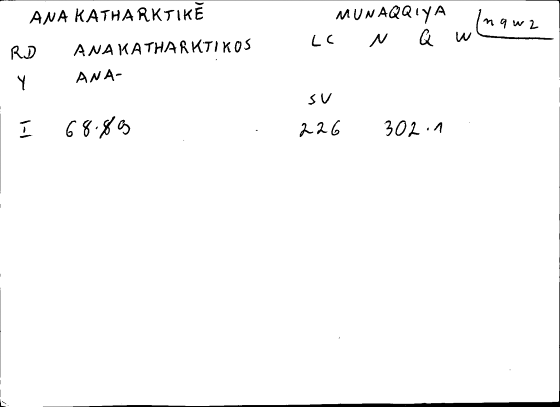 ANAKATHARKTIKĒ MUNAQQIYA nqw2
RD ANAKATHARKTIKOS LC N Q W
Y ANA-
SV
I 68.89 226 302.1